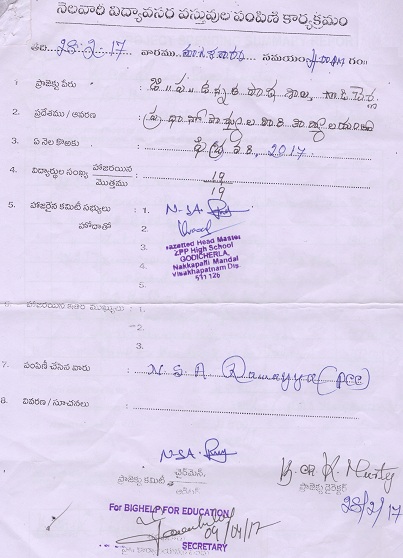 నెలవారీ విద్యావసర వస్తువుల పంపిణీ కార్యక్రమం
తేది 28-2-17 వారము మంగళవారం సమయం గం॥
1 ప్రాజెక్టు పేరు : జి.ప. ఉన్నత పాఠశాల, గొడిచెర్ల
2. ప్రదేశము / ఆవరణ : ప్రధానోపాధ్యాయుల కార్యాలయం
3. ఏ నెల కొఱకు : ఫిబ్రవరి, 2017
4. విద్యార్థుల సంఖ్య హాజరయిన 19
మొత్తము 19
5. హాజరైన కమిటీ సభ్యులు : 1. N.S.A.
హోదాతో 2.
3.
4.
5.
Gazetted Head Master
ZPP High School
GODICHERLA,
Nakkapalli Mandal
Visakhapatnam Dis.
531 126
6. హాజరయిన ఇతర ముఖ్యులు : 1.
2.
3.
7. పంపిణీ చేసిన వారు : N. S. A Ramayya (PCC)
8. వివరణ / సూచనలు :
N.S.A.
ప్రాజెక్టు కమిటీ చైర్‌మెన్,
K. Murty
ప్రాజెక్టు డైరెక్టర్
28/2/17
For BIGHELP FOR EDUCATION
09/04/17
SECRETARY